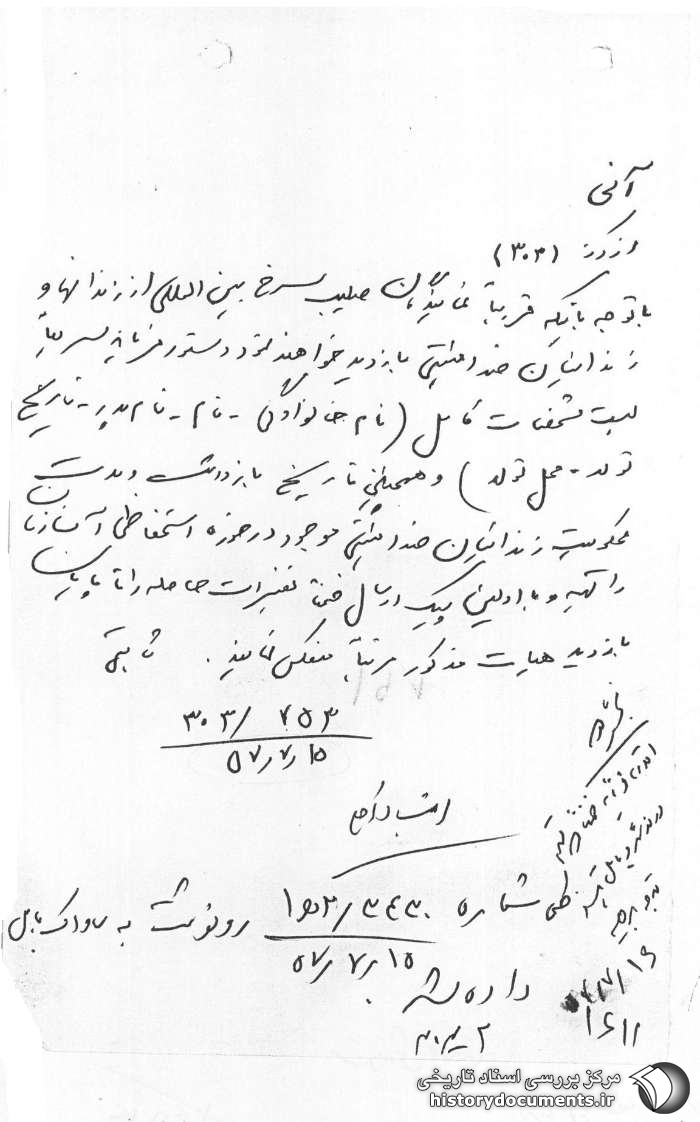 آنی
از مرکز (۳۰۳)
باتوجه باینکه قریباً نمایندگان صلیب سرخ بین المللی از زندانها و
زندانیان ضدامنیتی بازدید خواهند نمود دستور فرمایید سریعاً
لیست مشخصات کامل (نام خانوادگی - نام - نام پدر - تاریخ
تولد - محل تولد) و همچنین تاریخ بازداشت و مدت
محکومیت زندانیان ضدامنیتی موجود در حوزه استحفاظی آن سازمان
را تهیه و با اولین پیک ارسال ضمناً تغییرات حاصله را تا پایان
بازدید هیات مذکور مرتباً منعکس نمایند. ثابتی
۳۰۳/ ۷۵۳
۵۷/۷/۱۵
طی شماره ۳۴۳۰/ ۱۵۳ رونوشت به ساواک بابل
۵۷/۷/۱۵
داده شد.
مرکز بررسی اسناد تاریخی
historydocuments.ir